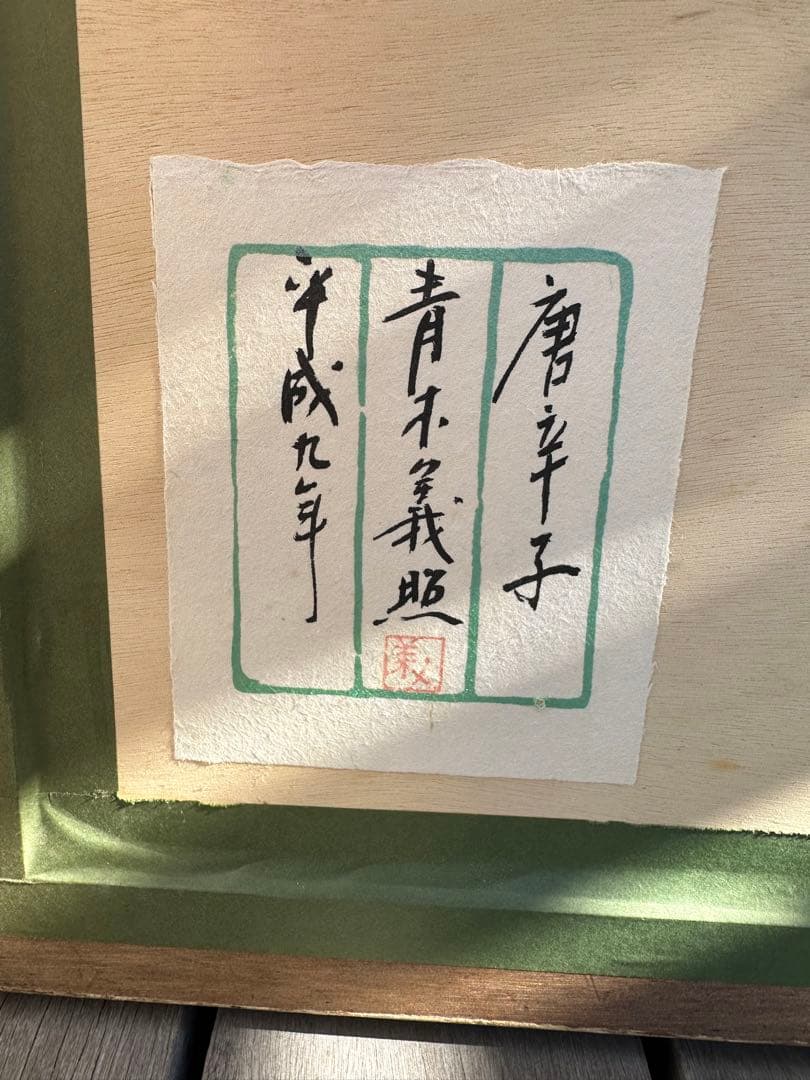 唐辛子
青木義照
平成九年